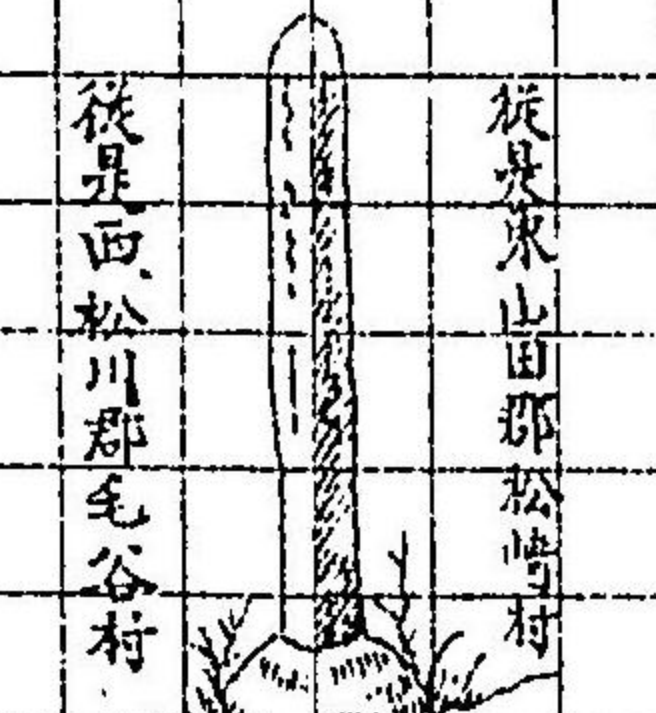 従是東山田郡松崎村
従是西松川郡毛谷村